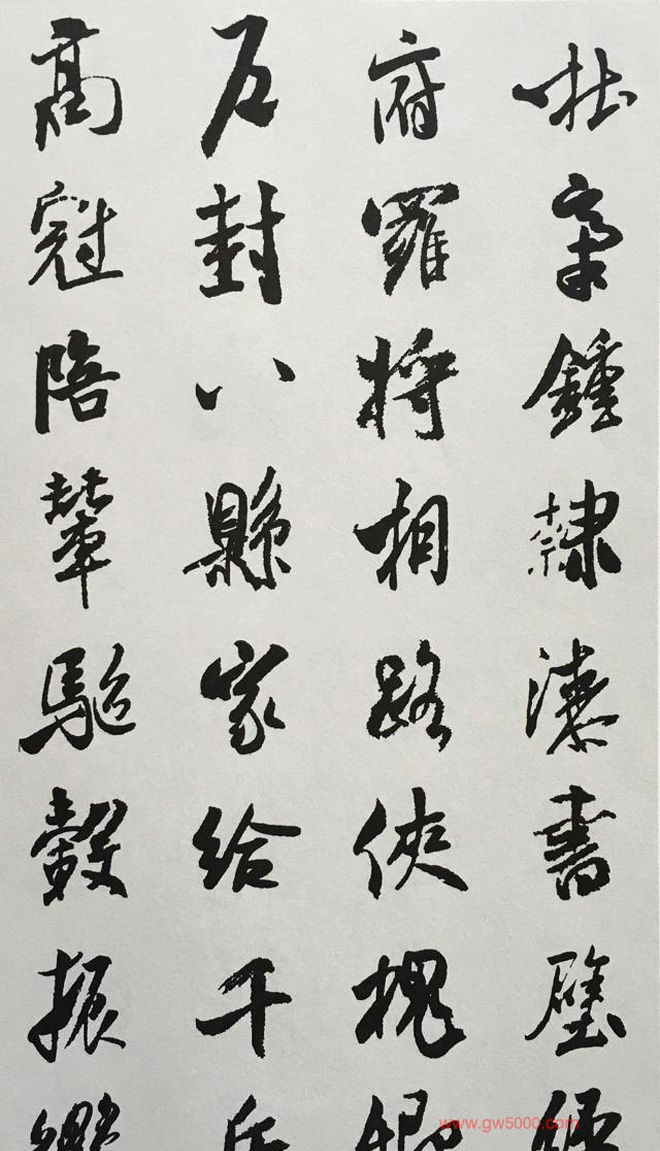 杜槀鍾隸漆書壁經
府羅將相路俠槐卿
戶封八縣家給千兵
高冠陪輦驅轂振纓
www.gw5000.com